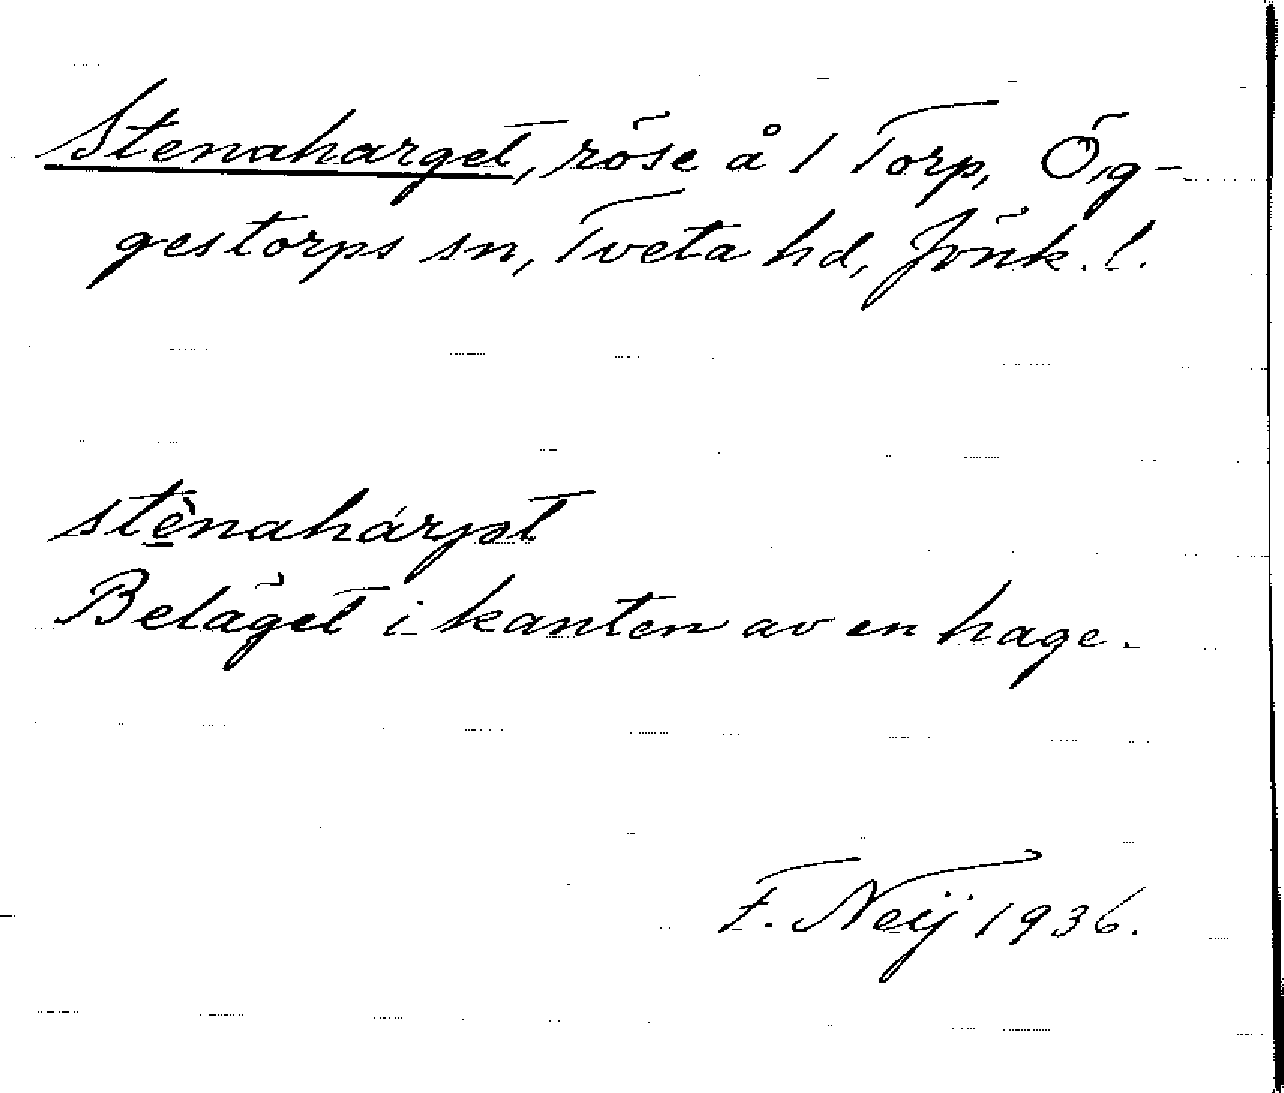 Stenaharget, röse å 1 Torp, Ög-
gestorps sn, Tveta hd, Jönk. l.
stènahárjət
Beläget i kanten av en hage.
F. Neij 1936.